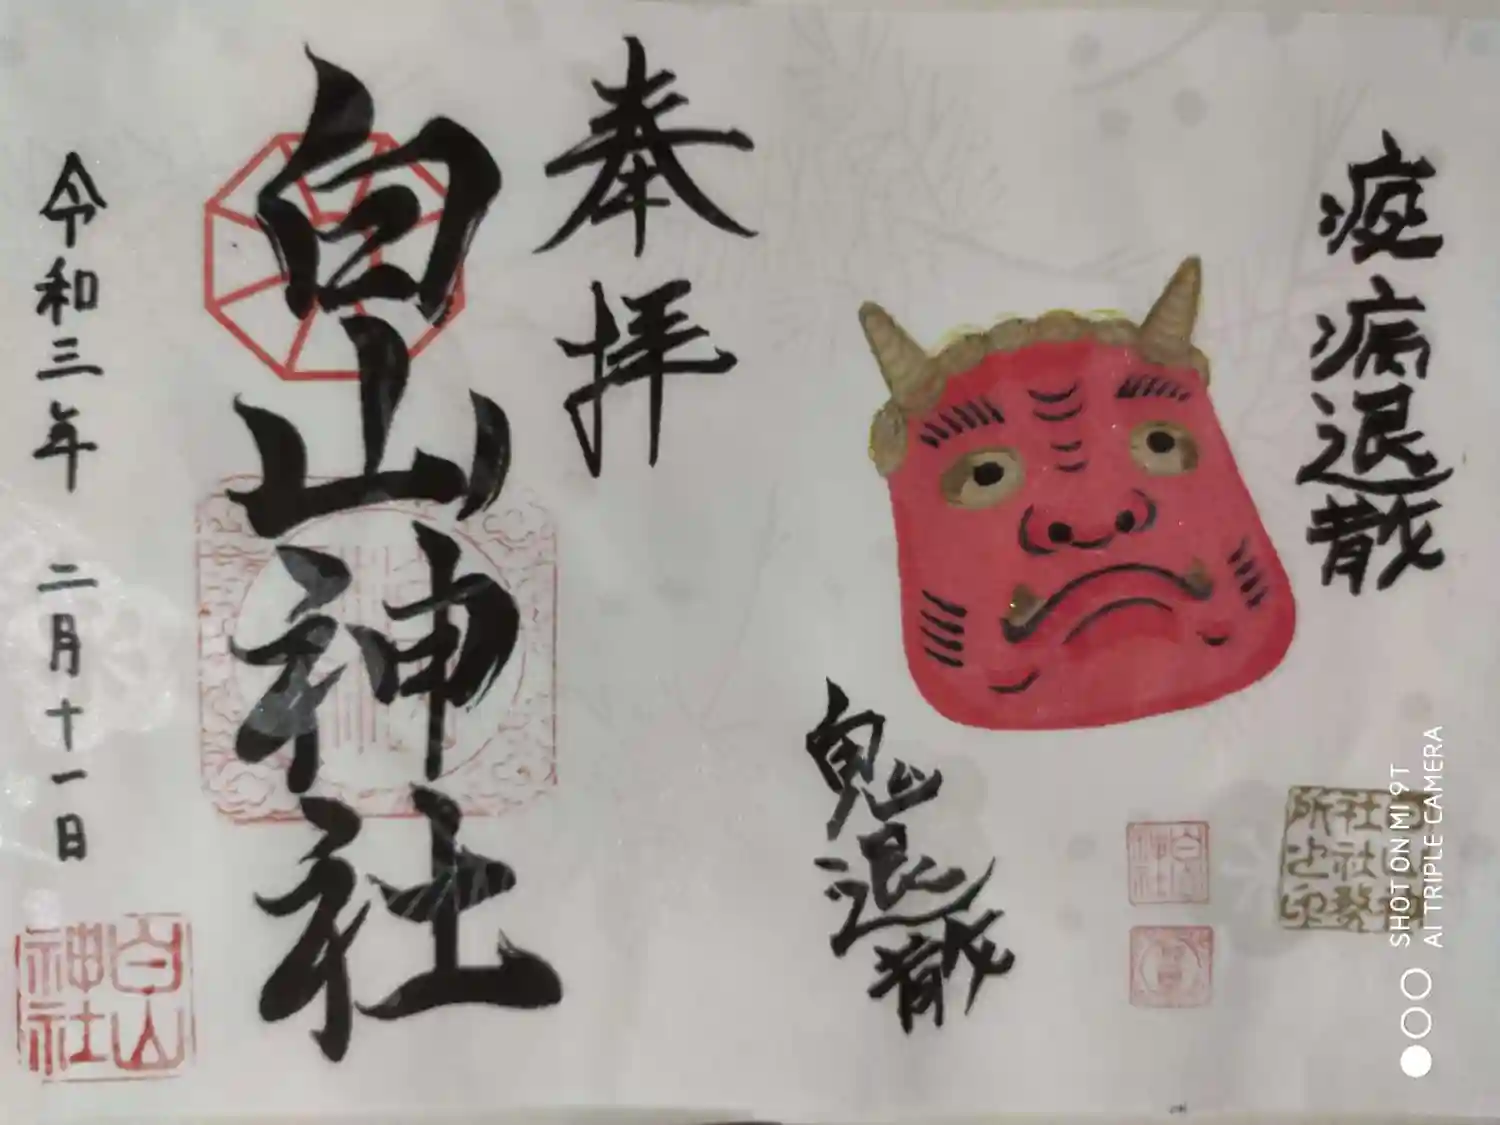 疫病退散
鬼退散
奉拝
白山神社
令和三年 二月十一日
白山
神社
白山
神社
SHOT ON MI 9T
AI TRIPLE CAMERA